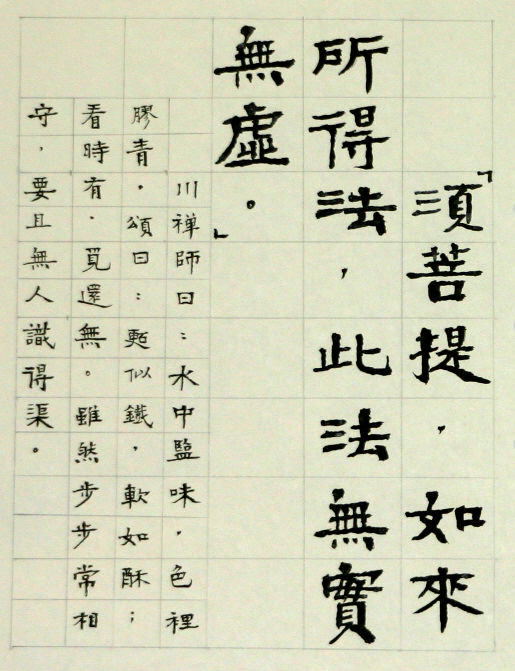 「須菩提，如來
所得法，此法無實
無虛。」
川禪師曰：水中鹽味，色裡
膠青。頌曰：硬似鐵，軟如酥；
看時有，覓還無。雖然步步常相
守，要且無人識得渠。